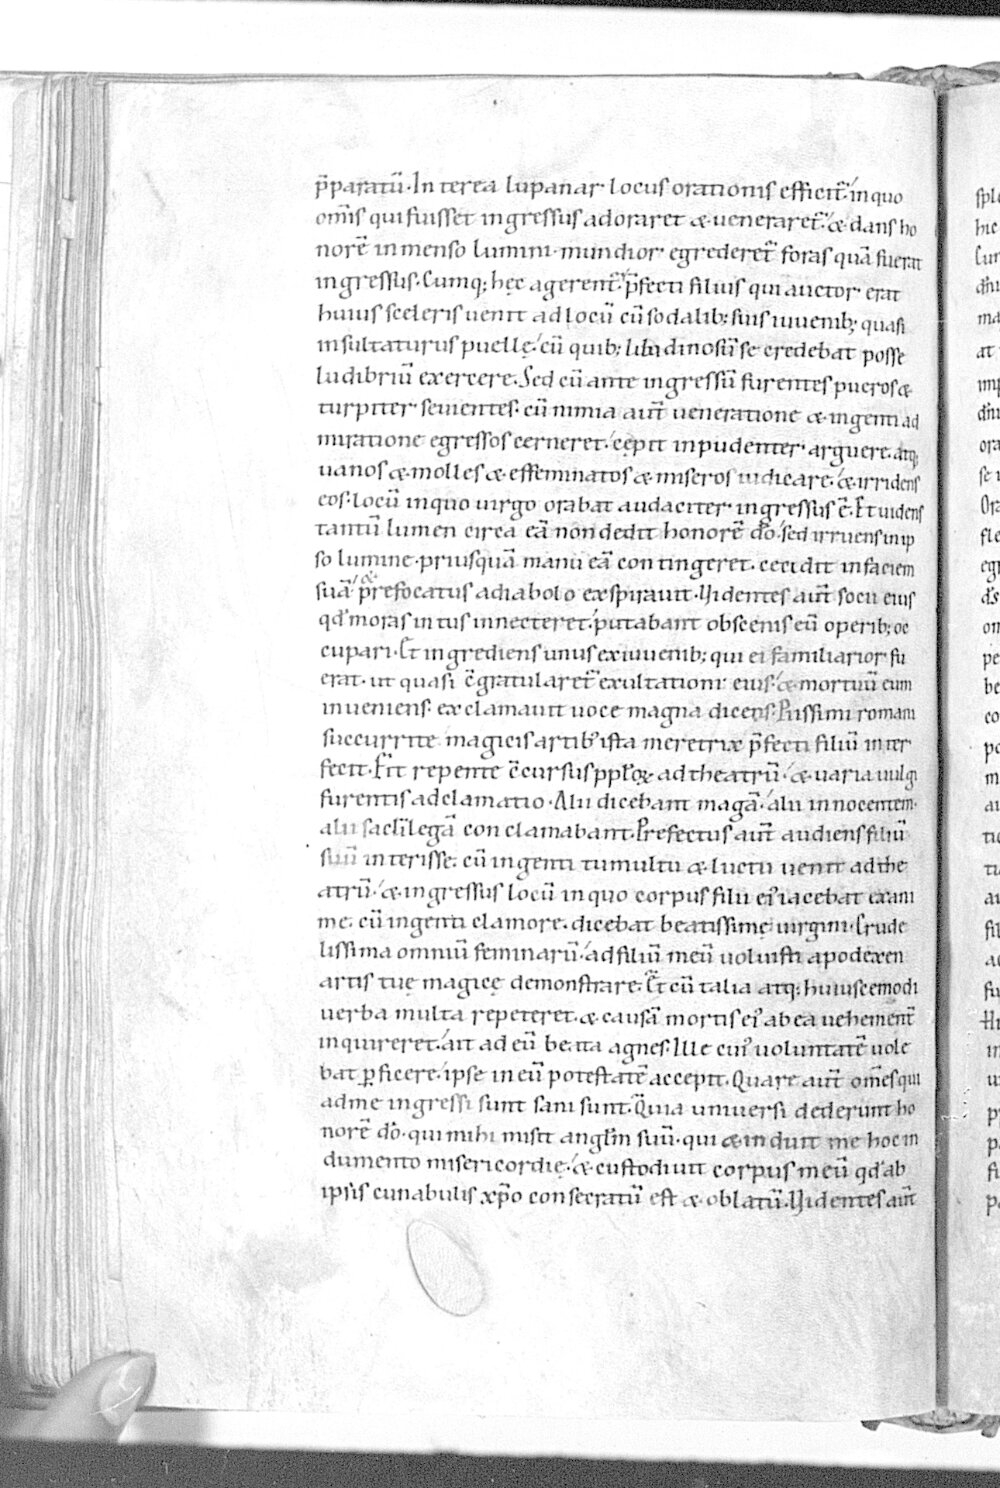 p̄paratū· In terea lupanar locus orationis efficit̄· in quo
om̄is qui fuisset ingressus adoraret & ueneraret̄· & dans ho
norē inmenso lumini· mundior egrederet̄ foras quā fuerat
ingressus· Cumq; hęc agerent̄· p̄fecti filius qui auctor erat
huius sceleris uenit ad locū cū sodalib; suis iuuenib; quasi
insultaturus puellę· cū quib; libidinosū se credebat posse
ludibriū exercere· Sed cū ante ingressū furentes pueros &
turpiter seuientes· cū nimia aut̄ ueneratione & ingenti ad
miratione egressos cerneret· cępit inpudenter arguere· atq;
uanos & molles & effeminatos & miseros iudicare· & irridens
eos· locū in quo uirgo orabat audaciter ingressus ē· Et uidens
tantū lumen circa eā non dedit honorē dō· sed irruens in ip
so lumine· priusquā manu eā contingeret· cecidit in faciem
suā· & p̄refocatus a diabolo exspirauit· Uidentes aut̄ socii eius
qd̄ moras intus innecteret· putabant obscenis eū operib; oc
cupari· Et ingrediens unus ex iuuenib; qui ei familiarior fu
erat· ut quasi c̄gratularet̄ exultationi eius· & mortuū eum
inueniens· exclamauit uoce magna dicens· Piissimi romani
succurrite magicis artib; ista meretrix p̄fecti filiū inter
fecit· Fit repente c̄cursus pplꝝ ad theatrū· & uaria uulgi
furentis adclamatio· Alii dicebant magā· alii innocentem·
alii sacrilegā conclamabant· Prefectus aut̄ audiens filiū
suū interisse· cū ingenti tumultu & luctu uenit ad the
atrū· & ingressus locū in quo corpus filii ei' iacebat exani
me· cū ingenti clamore· dicebat beatissimę uirgini· Crude
lissima omniū feminarū· ad filiū meū uoluisti apodexen
artis tuę magicę demonstrare· Et cū talia atq; huiuscemodi
uerba multa repeteret· & causā mortis ei' ab ea uehement̄
inquireret· ait ad eū beata agnes· Ille cui' uoluntatē uole
bat ꝑficere· ipse in eū potestatē accepit· Quare aut̄ om̄es qui
ad me ingressi sunt sani sunt· Quia uniuersi dederunt ho
norē dō· qui mihi misit anglm̄ suū· qui & induit me hoc in
dumento misericordię· & custodiuit corpus meū qd̄ ab
ipsis cunabulis xp̄o consecratū est & oblatū· Uidentes aut̄